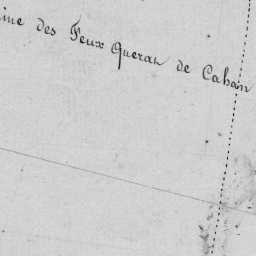 ine des Feux Queran de Cahan